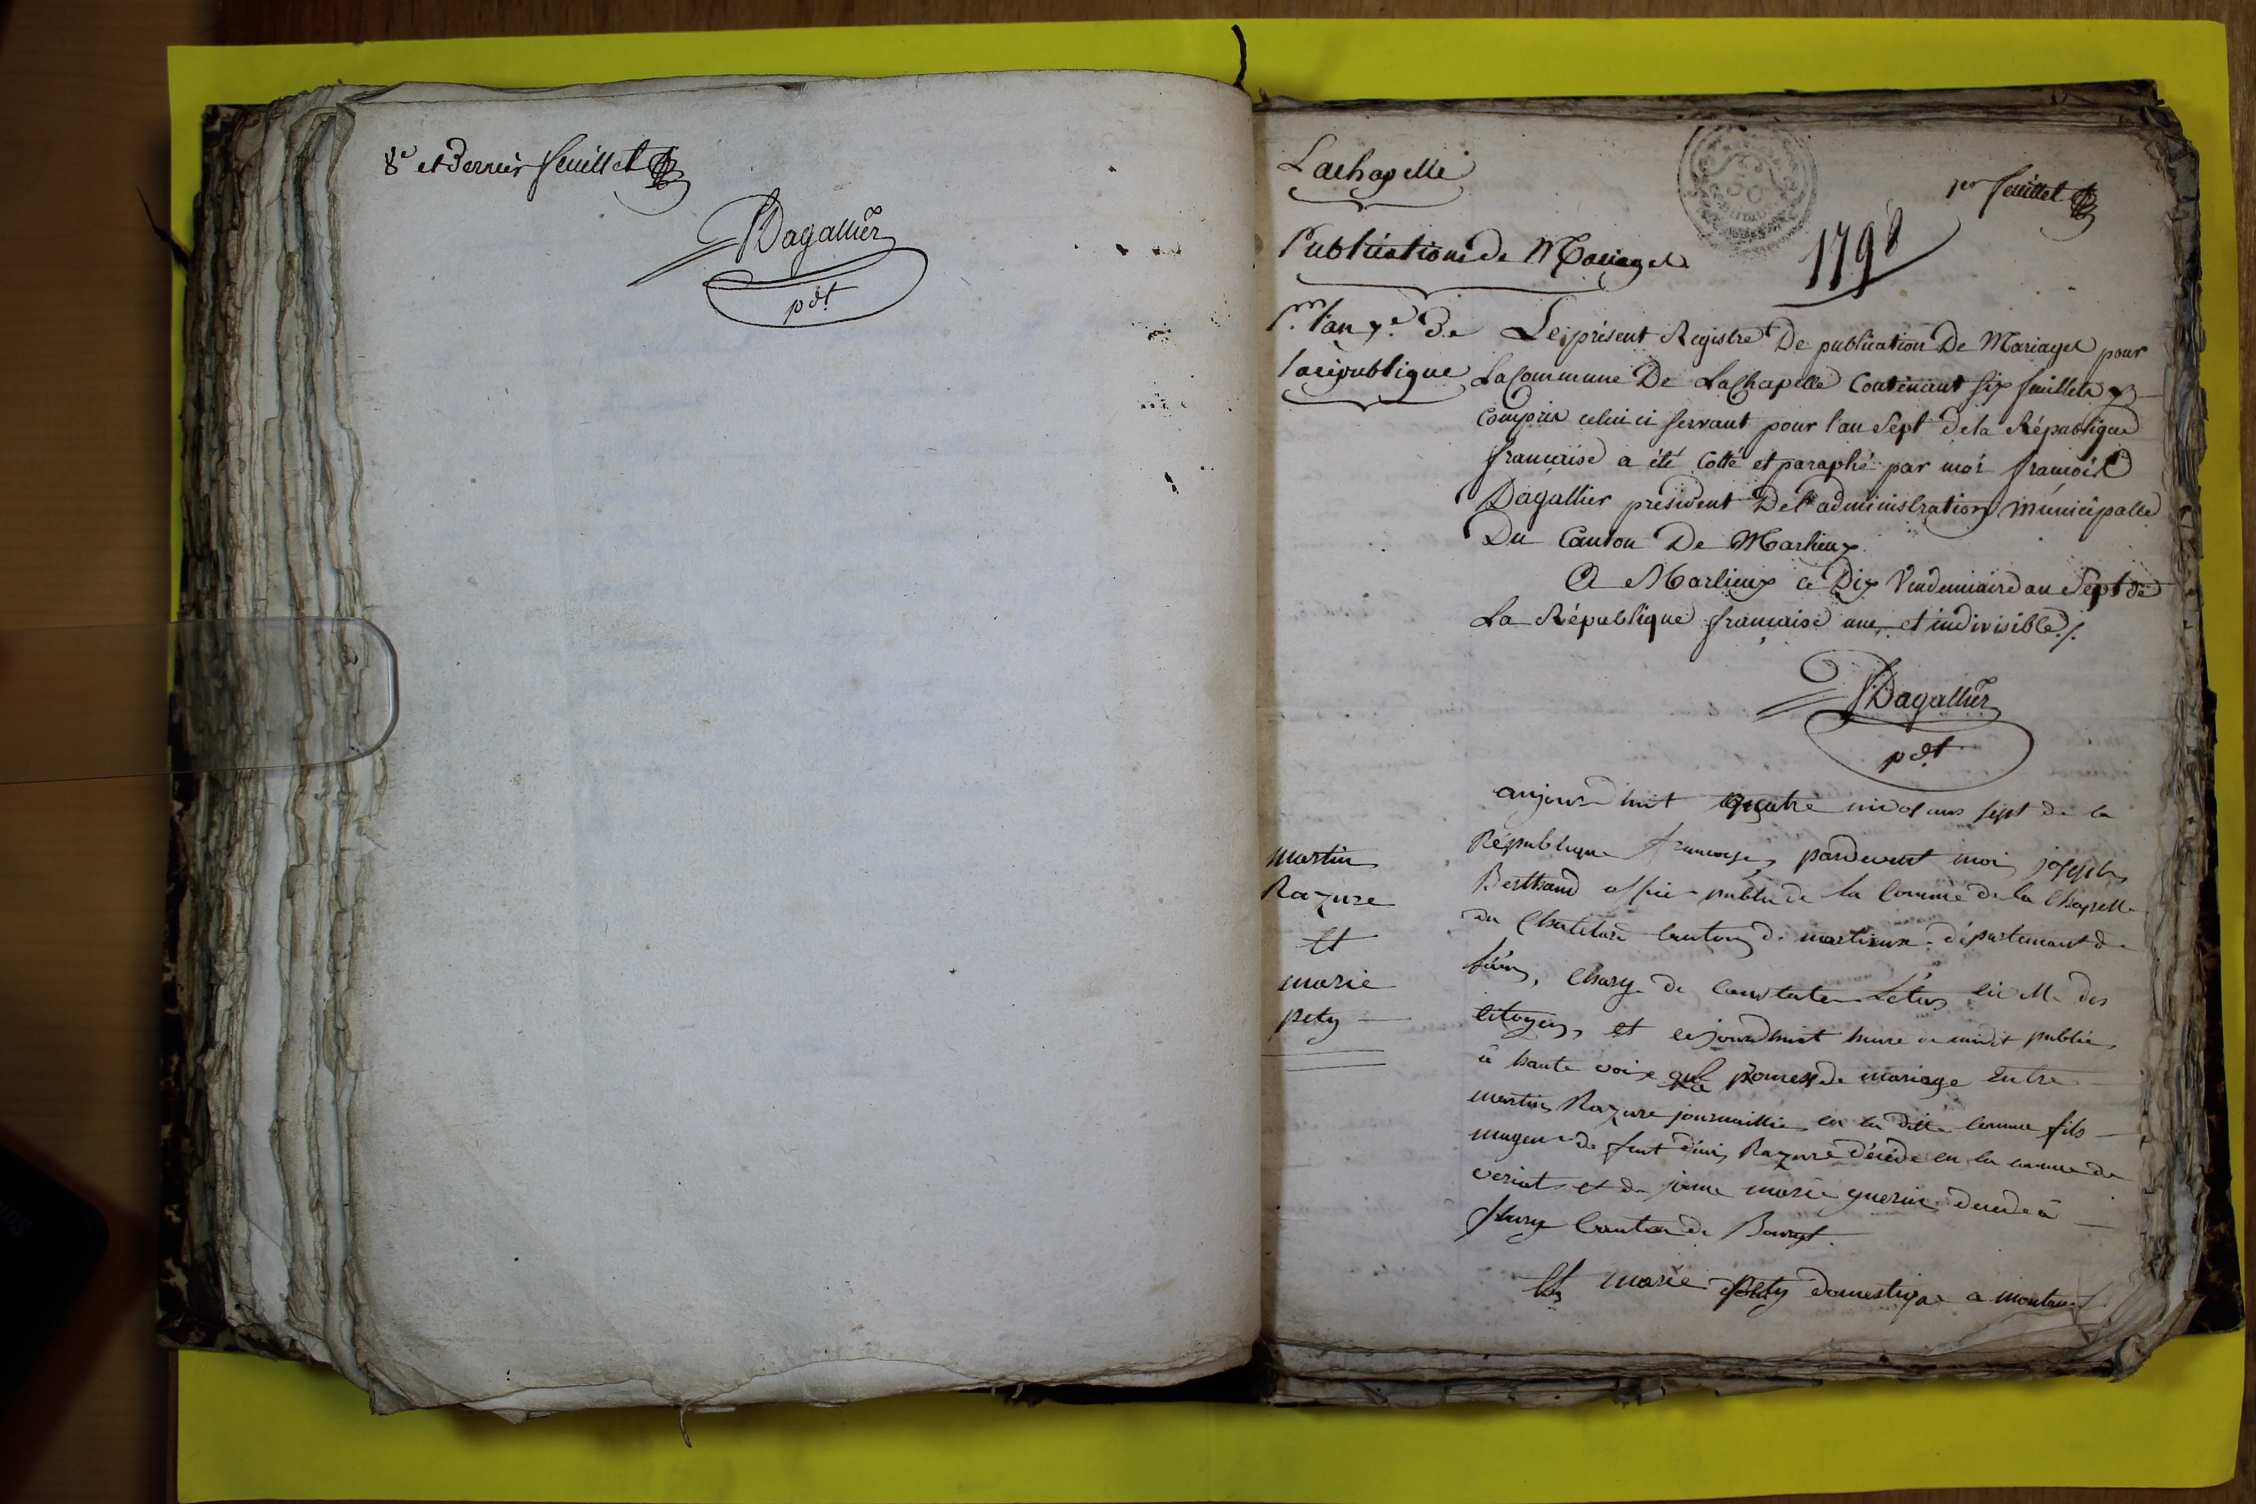 8e et Dernier feuillet
Dagallier
pdt
Lachapelle
1er feuillet
1798
Publications de Mariages
Pr l'an 7e De
la république
Le présent Registre De publication De Mariages pour
La Commune De LaChapelle Contenant six feuillets y
Compris celui ci servant pour l'an Sept de la République
française a été Cotté et paraphé par moi françois
Dagallier président De l'administration Municipalle
Du Canton De Marlieux
A Marlieux ce Dix Vendemiaire an Sept de
La République française une et indivisible ./.
Dagallier
pdt
martin
Razure
Et
marie
pety
aujourdhuit quatre nivos ans sept de la
République françoise, pardevent moi joseph
Berthand offier public de la Comune de la Chapelle
du Chatelard Canton de marlieux département de
l'ain, Charge de Constater Letas civil des
citoyens, et cejourdhuit heure de midit publié
à haute voix promesse de mariage Entre
martin Razure journallier en la ditte Comune fils
mageur de feut Razure décédé en la comune de
et de jeanne marie guerin decedé à
Canton de
Et marie pety domestique a